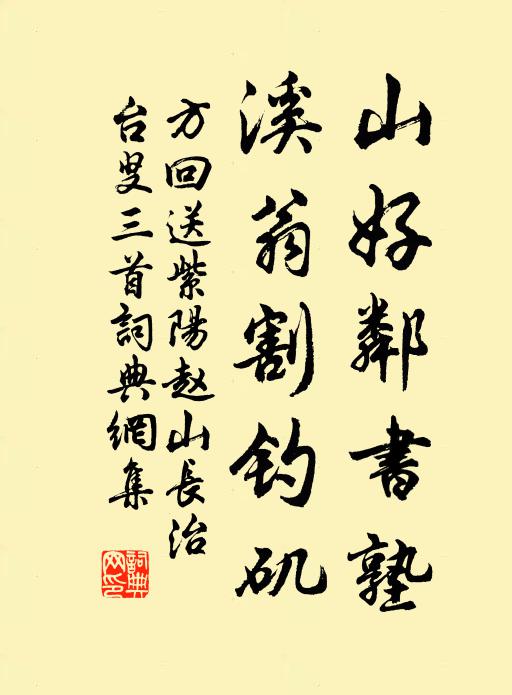 山好鄰書塾
溪翁割钓矶
方回送紫陽赵山長治
台叟三首詞典網集
詞典网印